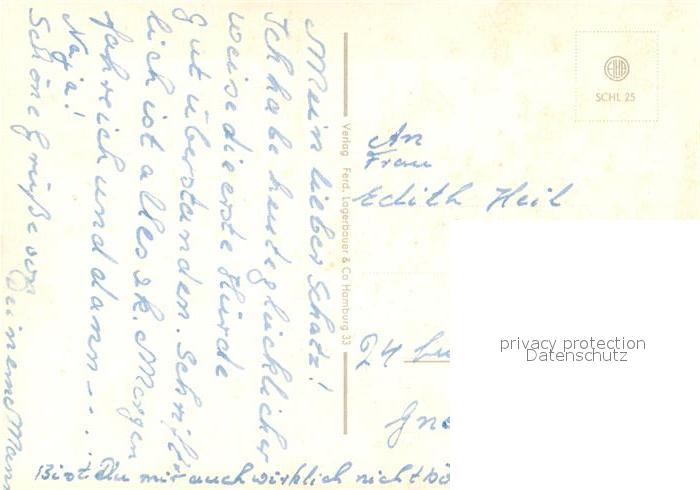 Mein lieber Schatz!
Ich habe heute glücklicher
weise die erste Hürde
gut überstanden. Schrift-
lich ist alles z.k. Morgen
fahre ich und dann - . . .
Na ja!
Schöne Grüße von
Deinem Mann
Bist Du mir auch wirklich nicht bö
Verlag Ferd. Lagerbauer & Co Hamburg 33
EIHA
SCHL 25
An
Frau
Edith Heil
24
privacy protection
Datenschutz